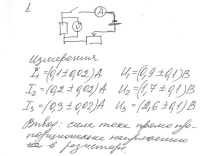 1
A
V
Измерения
I₁=(0,1±0,02)А U₁=(0,9±0,1)В
I₂=(0,2±0,02)А U₂=(1,7±0,1)В
I₃=(0,3±0,02)А U₃=(2,6±0,1)В
Вывод: сила тока прямо про-
порциональна напряжению
в резисторе.